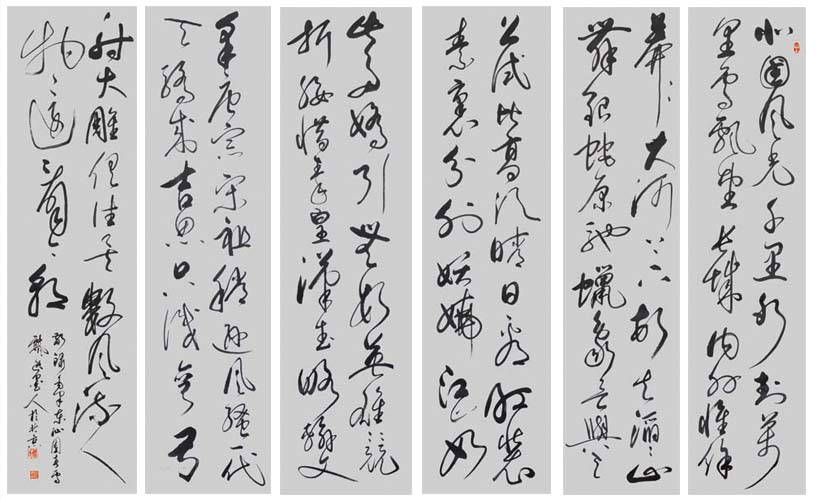 北國风光千里冰封万
里雪飘望长城内外惟余
莽莽大河上下顿失滔滔山
舞银蛇原驰蠟象欲與天
公试比高须晴日看红装
素裹分外妖娆江山如
此多娇引無数英雄竞
折腰惜秦皇漢武略输文
采唐宗宋祖稍逊风骚一代
天骄成吉思只識弯弓
射大雕俱往矣數风流人
物还看今朝
敬録毛泽东沁園春雪
墨人於北京